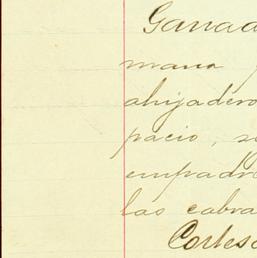 Ganad
mana
ahijadero
pacio, s
empadr
las cabra
Cortes